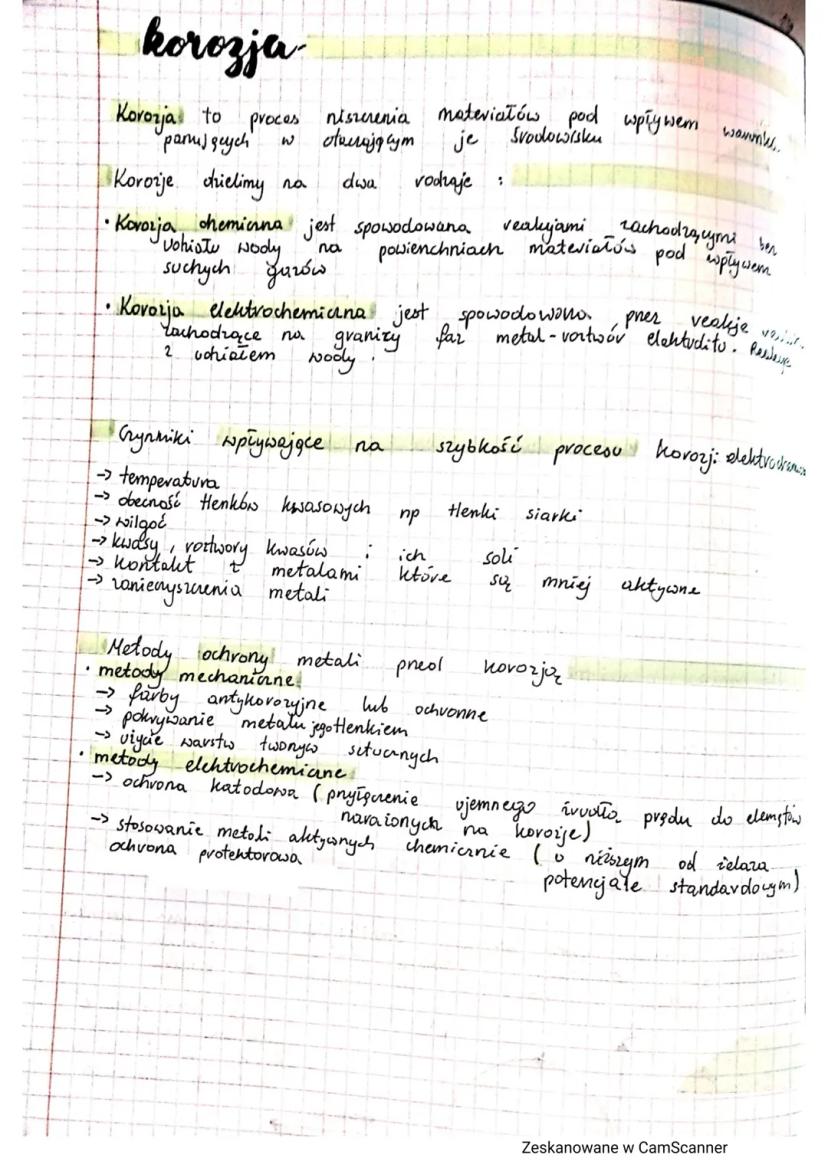 korozja
Korozja to proces niszczenia materiałów pod wpływem
panujących w otaczającym je środowisku
Korozje dzielimy na dwa rodzaje :
• Korozja chemiczna jest spowodowana reakcjami zachodzącymi bez
udziału wody na powierzchniach materiałów pod wpływem
suchych gazów
• Korozja elektrochemiczna jest spowodowana przez reakcje
zachodzące na granicy faz metal-roztwór elektrolitu.
z udziałem wody.
Czynniki wpływające na szybkość procesu korozji
-> temperatura
-> obecność tlenków kwasowych np tlenki siarki
-> wilgoć
-> kwasy, roztwory kwasów i ich soli
-> kontakt z metalami które są mniej aktywne
-> zanieczyszczenia metali
Metody ochrony metali przed korozją
• metody mechaniczne
-> farby antykorozyjne lub ochronne
-> pokrywanie metalu jego tlenkiem
-> użycie warstw tworzyw sztucznych
• metody elektrochemiczne
-> ochrona katodowa (przyłączenie ujemnego źródła prądu do elemętów
narażonych na korozje)
-> stosowanie metali aktywnych chemicznie (o niższym od żelaza
ochrona protektorowa potencjale standardowym)
Zeskanowane w CamScanner